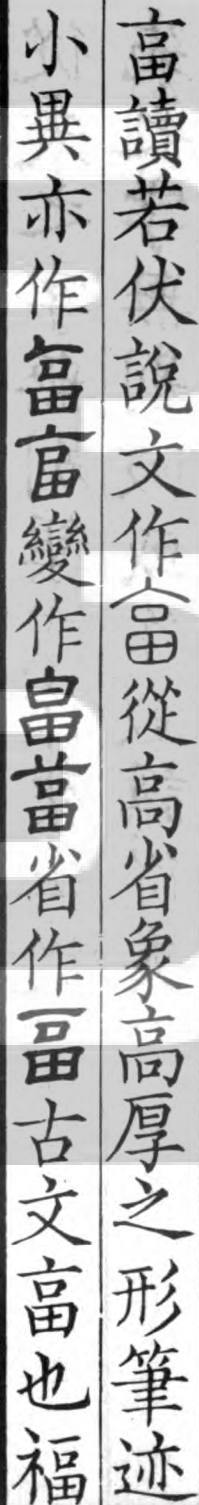 畗讀若伏說文作畗從高省象高厚之形筆迹
小異亦作畗畗變作畐省作畐古文畗也福